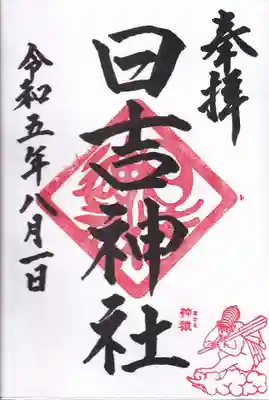 奉拝
日吉神社
神猿
まさる
令和五年八月一日